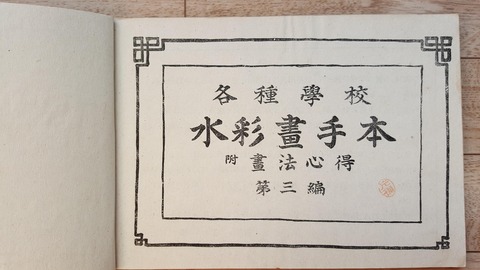 各種學校
水彩畫手本
附畫法心得
第三編